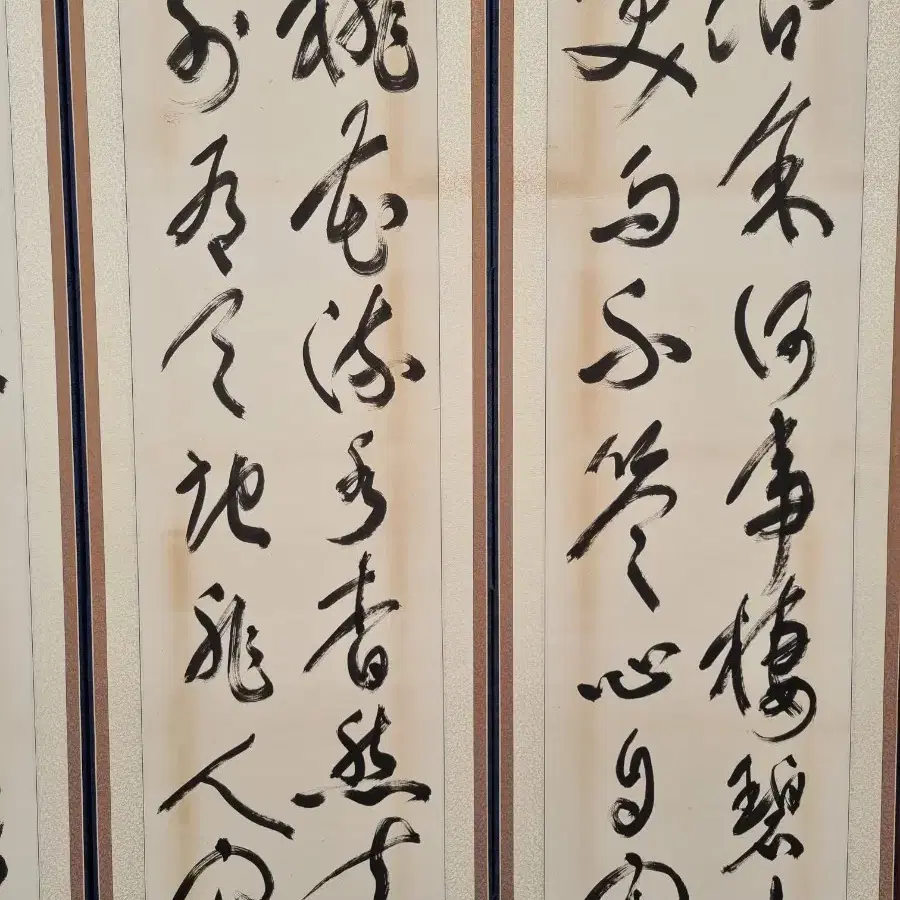 余何事棲碧
笑而不答心自閑
桃花流水杳然去
別有天地非人間